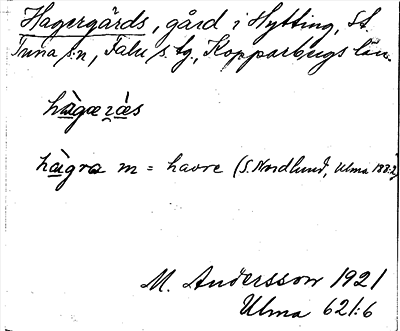 Hagergårds, gård i Hytting, St.
Tuna s:n, Falu s. tg., Kopparbergs län.
hàgærås
hàgra m = havre (S. Nordlund, Ulma 188:2)
M. Andersson 1921
Ulma 621:6